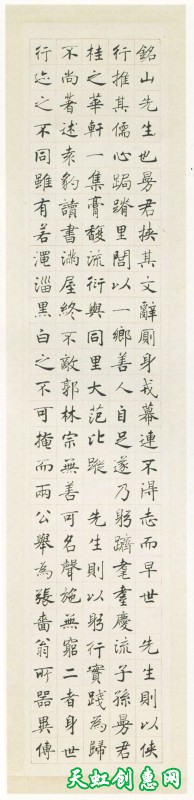 銘山先生也曷君挾其文辭廁身戎幕連不得志而早世　先生則以俠
行推其儒心跼蹐里閭以一鄉善人自足遂乃躬躋耄耋慶流子孫曷君
桂之華軒一集膏馥流衍與同里大范比蹤　先生則以躬行實踐為歸
不尚著述袁豹讀書滿屋終不敵郭林宗無善可名聲施無窮二者身世
行迹之不同雖有若澠淄黑白之不可掩而兩公舉為張嗇翁所器異傳
天虹创惠网